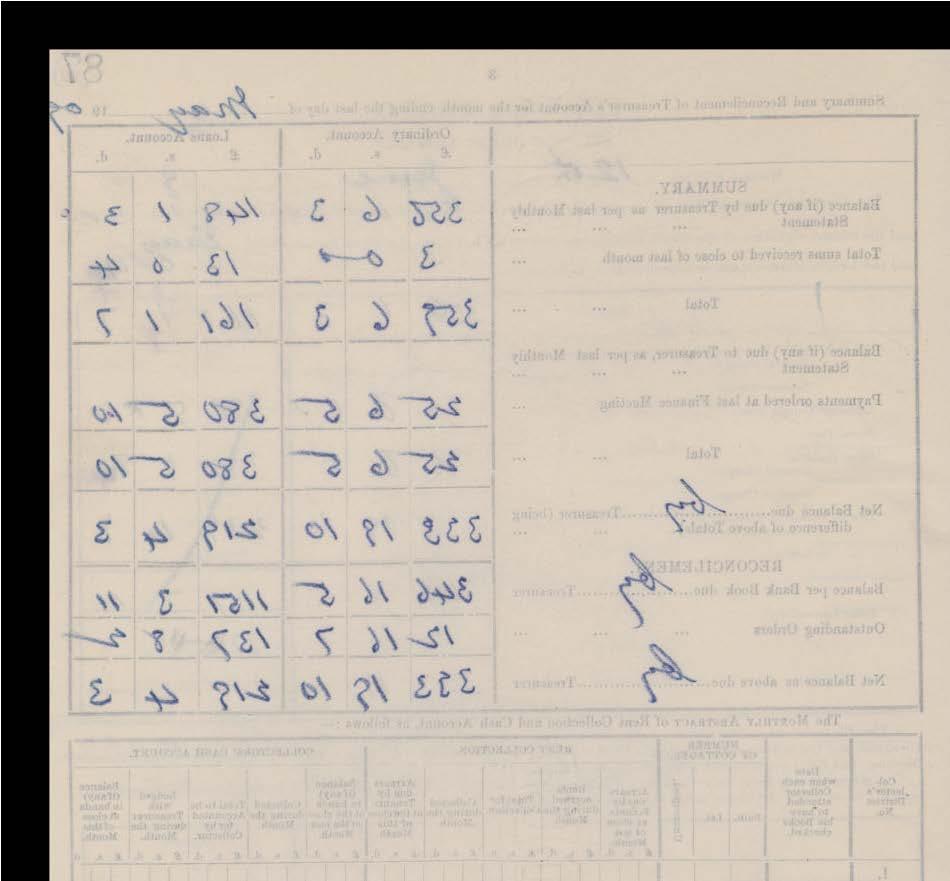 87
3
Summary and Reconcilement of Treasurer's Account for the month ending the last day of May 19 09
Ordinary Account. Loans Account.
£ s. d. £ s. d.
SUMMARY.
Balance (if any) due by Treasurer as per last Monthly
Statement ... ... ... 356 6 3 148 1 3
Total sums received to close of last month ... 3 0 - 13 0 4
Total ... ... 359 6 3 161 1 7
Balance (if any) due to Treasurer, as per last Monthly
Statement ... ... ...
Payments ordered at last Finance Meeting ... 25 6 5 380 5 10
Total ... ... 25 6 5 380 5 10
Net Balance due by Treasurer (being
difference of above Totals) ... ... 333 19 10 219 4 3
RECONCILEMENT.
Balance per Bank Book due by Treasurer 346 16 5 1157 3 11
Outstanding Orders ... ... ... 12 16 7 137 8 2
Net Balance as above due by Treasurer 333 19 10 219 4 3
The MONTHLY ABSTRACT of Rent Collection and Cash Account, is as follows :—
Collector's District No.
Date when each Collector attended to have his Books checked.
NUMBER OF COTTAGES.
Built. Let.
RENT COLLECTION.
COLLECTORS' CASH ACCOUNT.
Collected during the Month
Total to be Accounted for by Collector.
Lodged with Treasurer during the Month.
Balance (if any) in hands at close of this Month.
£ s. d.
1.